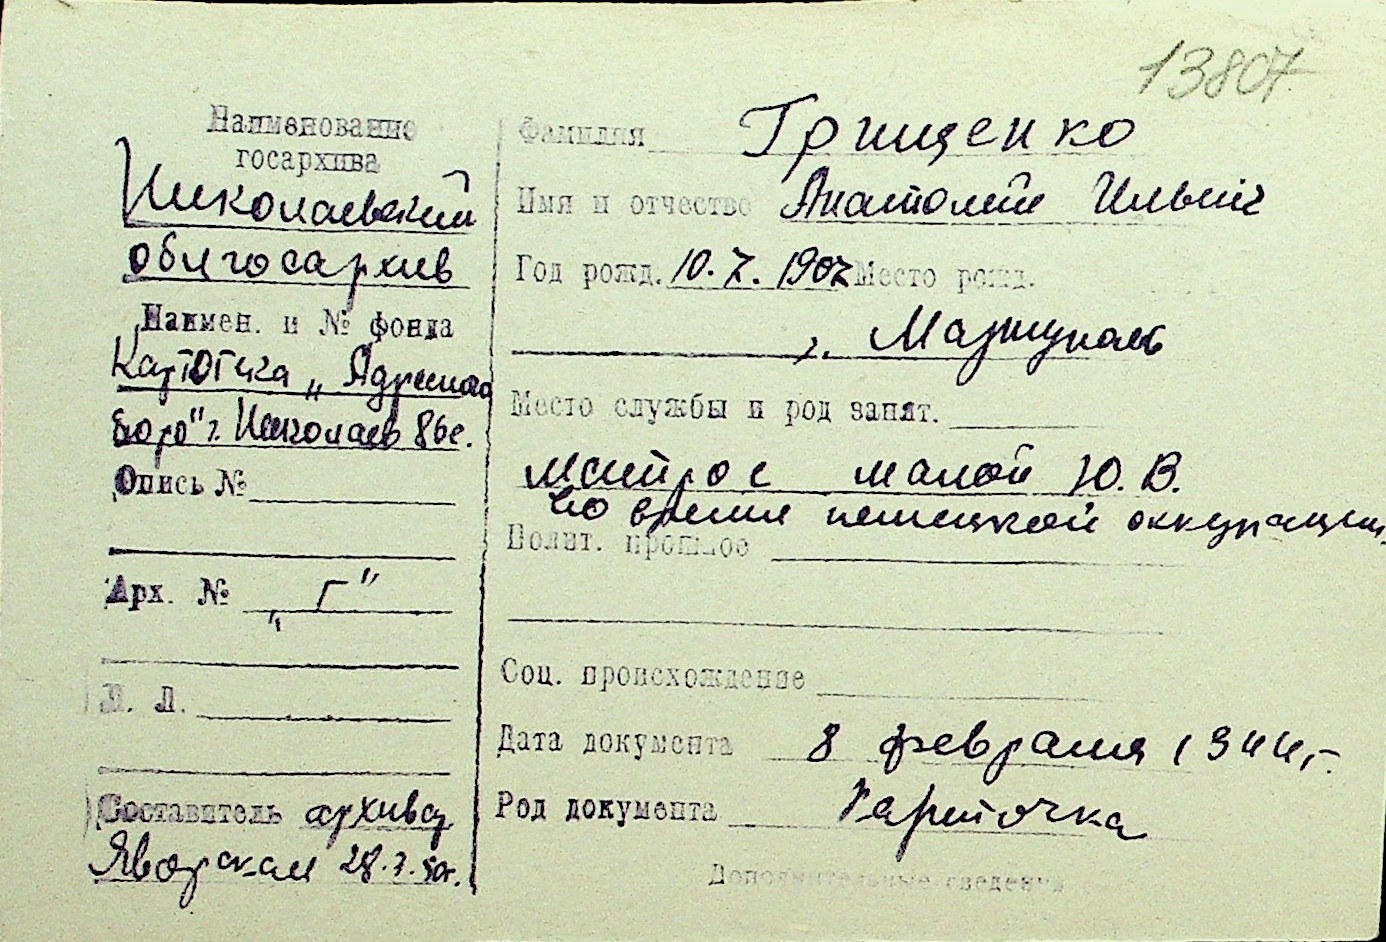 13807
Наименование
госархива
Николаевский
облгосархив
Наимен. и № фонда
Картотека „Адресного
бюро" г. Николаев 86с.
Опись №
Арх. № „Г"
Л. Л.
Составитель архивар
Яворская 28.7.50г.
Фамилия Грищенко
Имя и отчество Анатолий Ильич
Год рожд. 10.7.1907 Место рожд.
г. Мариуполь
Место службы и род занят.
матрос малой Ю.В.
во время немецкой оккупации.
Полит. прошлое
Соц. происхождение
Дата документа 8 февраля 1944г.
Род документа Карточка
Дополнительные сведения